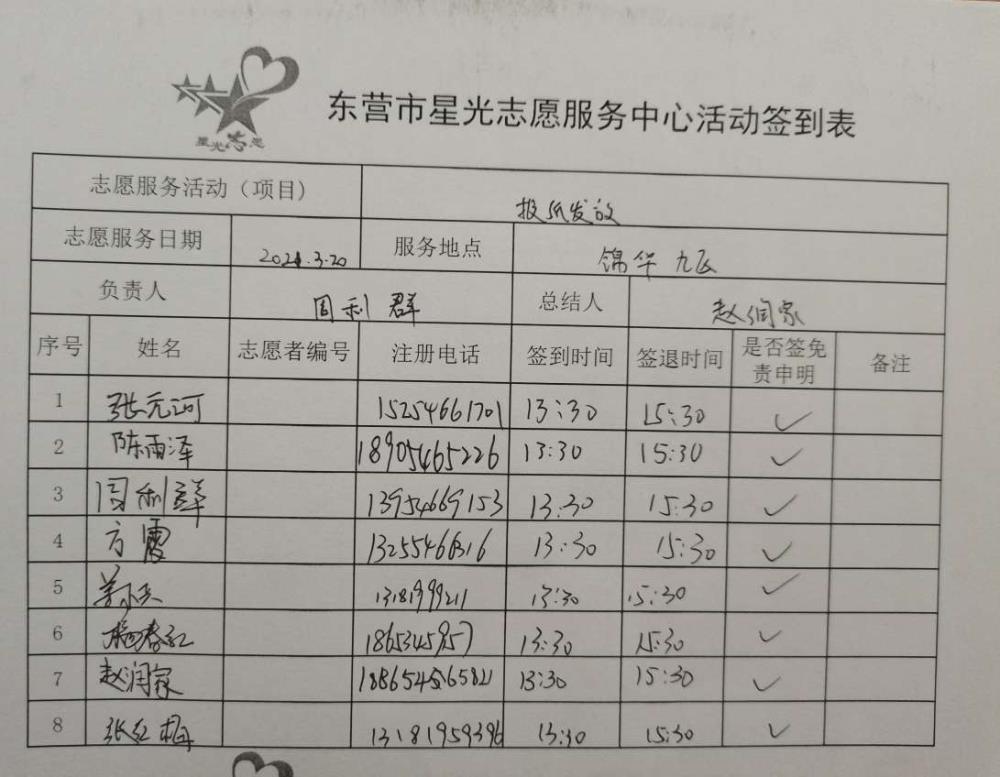 星光志愿
东营市星光志愿服务中心活动签到表
志愿服务活动（项目） 报纸发放
志愿服务日期 2021.3.20 服务地点 锦华九区
负责人 周利群 总结人 赵润家
序号 姓名 志愿者编号 注册电话 签到时间 签退时间 是否签免责申明 备注
1 张元河 15254661701 13:30 15:30 ✓
2 陈雨泽 18905465226 13:30 15:30 ✓
3 周利群 13954669153 13:30 15:30 ✓
4 方震 13:30 15:30 ✓
5 13181999211 13:30 15:30 ✓
6 杨春红 13:30 15:30 ✓
7 赵润家 13:30 15:30 ✓
8 张红梅 13181959396 13:30 15:30 ✓